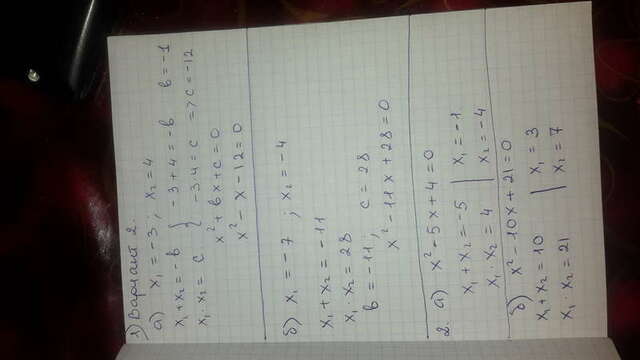 1) Вариант 2.
а) x₁ = -3; x₂ = 4
x₁ + x₂ = -b } -3 + 4 = -b b = -1
x₁ · x₂ = c } -3·4 = c => c = -12
x² + bx + c = 0
x² - x - 12 = 0
б) x₁ = -7; x₂ = -4
x₁ + x₂ = -11
x₁ · x₂ = 28
b = -11; c = 28
x² - 11x + 28 = 0
2. а) x² - 5x + 4 = 0
x₁ + x₂ = -5 | x₁ = -1
x₁ · x₂ = 4 | x₂ = -4
б) x² - 10x + 21 = 0
x₁ + x₂ = 10 | x₁ = 3
x₁ · x₂ = 21 | x₂ = 7